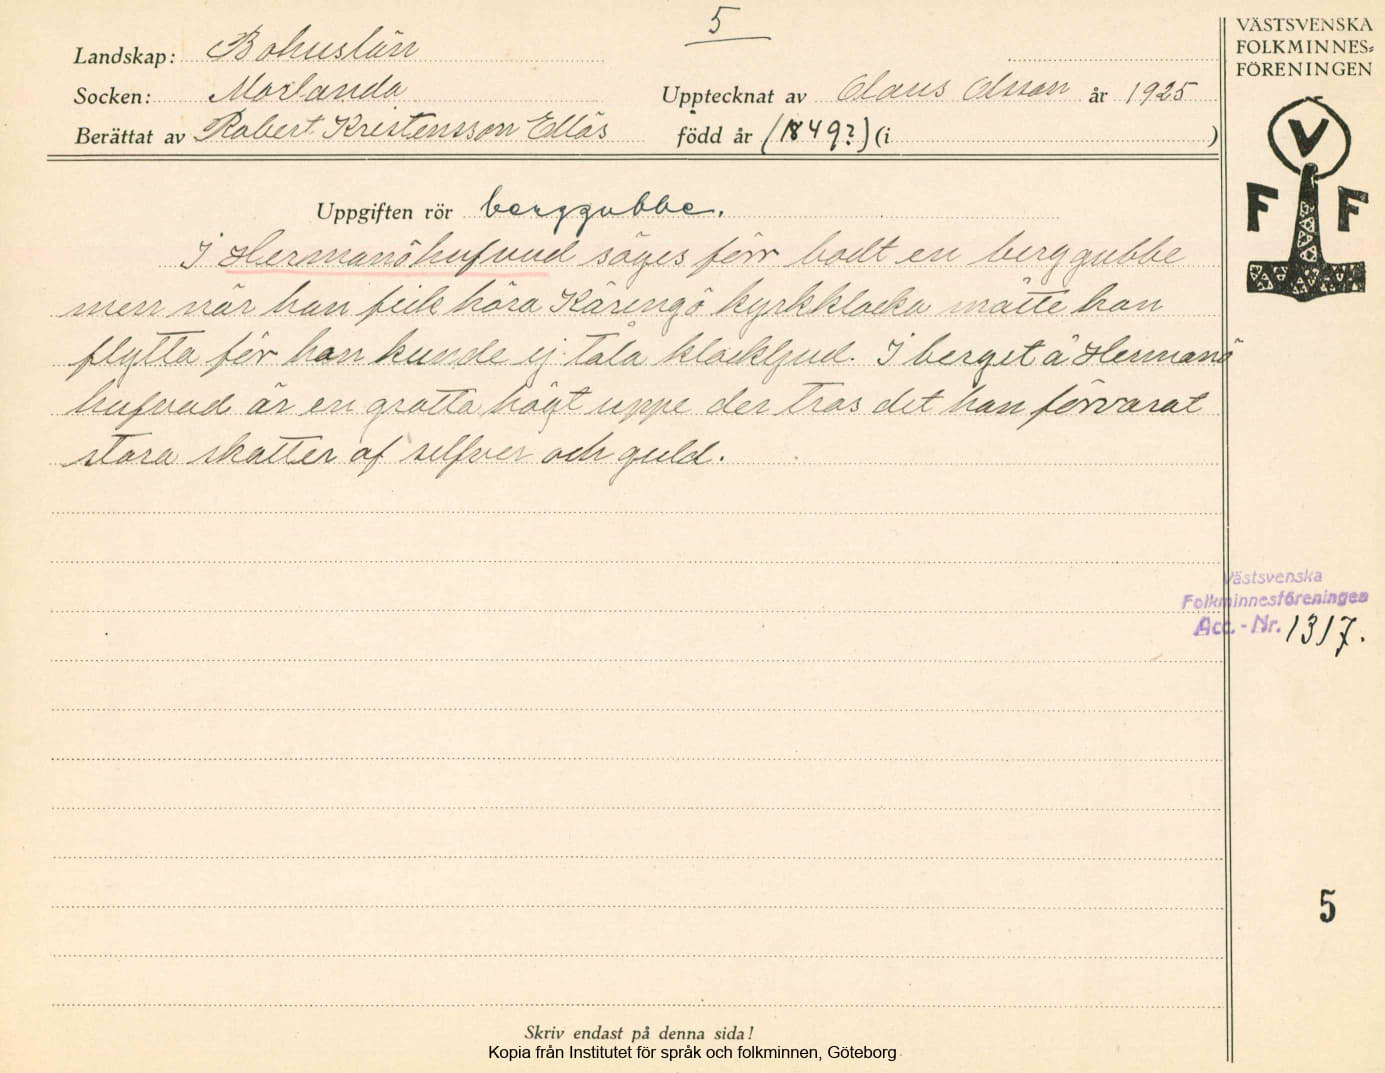 5
Landskap: Bohuslän
Socken: Morlanda
Upptecknat av Claus Olsson år 1925
Berättat av Robert Kristensson Ellös
född år (1849?) (i )
VÄSTSVENSKA
FOLKMINNES=
FÖRENINGEN
V
F F
Uppgiften rör berggubbe.
I Hermanöhufvud säges förr bodt en berggubbe
men när han fick höra Käringö kyrkklocka måtte han
flytta för han kunde ej tåla klockljud. I berget å Hermanö
hufvud är en grotta högt uppe der tros det han förvarat
stora skatter af silfver och guld.
Västsvenska
Folkminnesföreningen
Acc. - Nr. 1317.
5
Skriv endast på denna sida!
Kopia från Institutet för språk och folkminnen, Göteborg